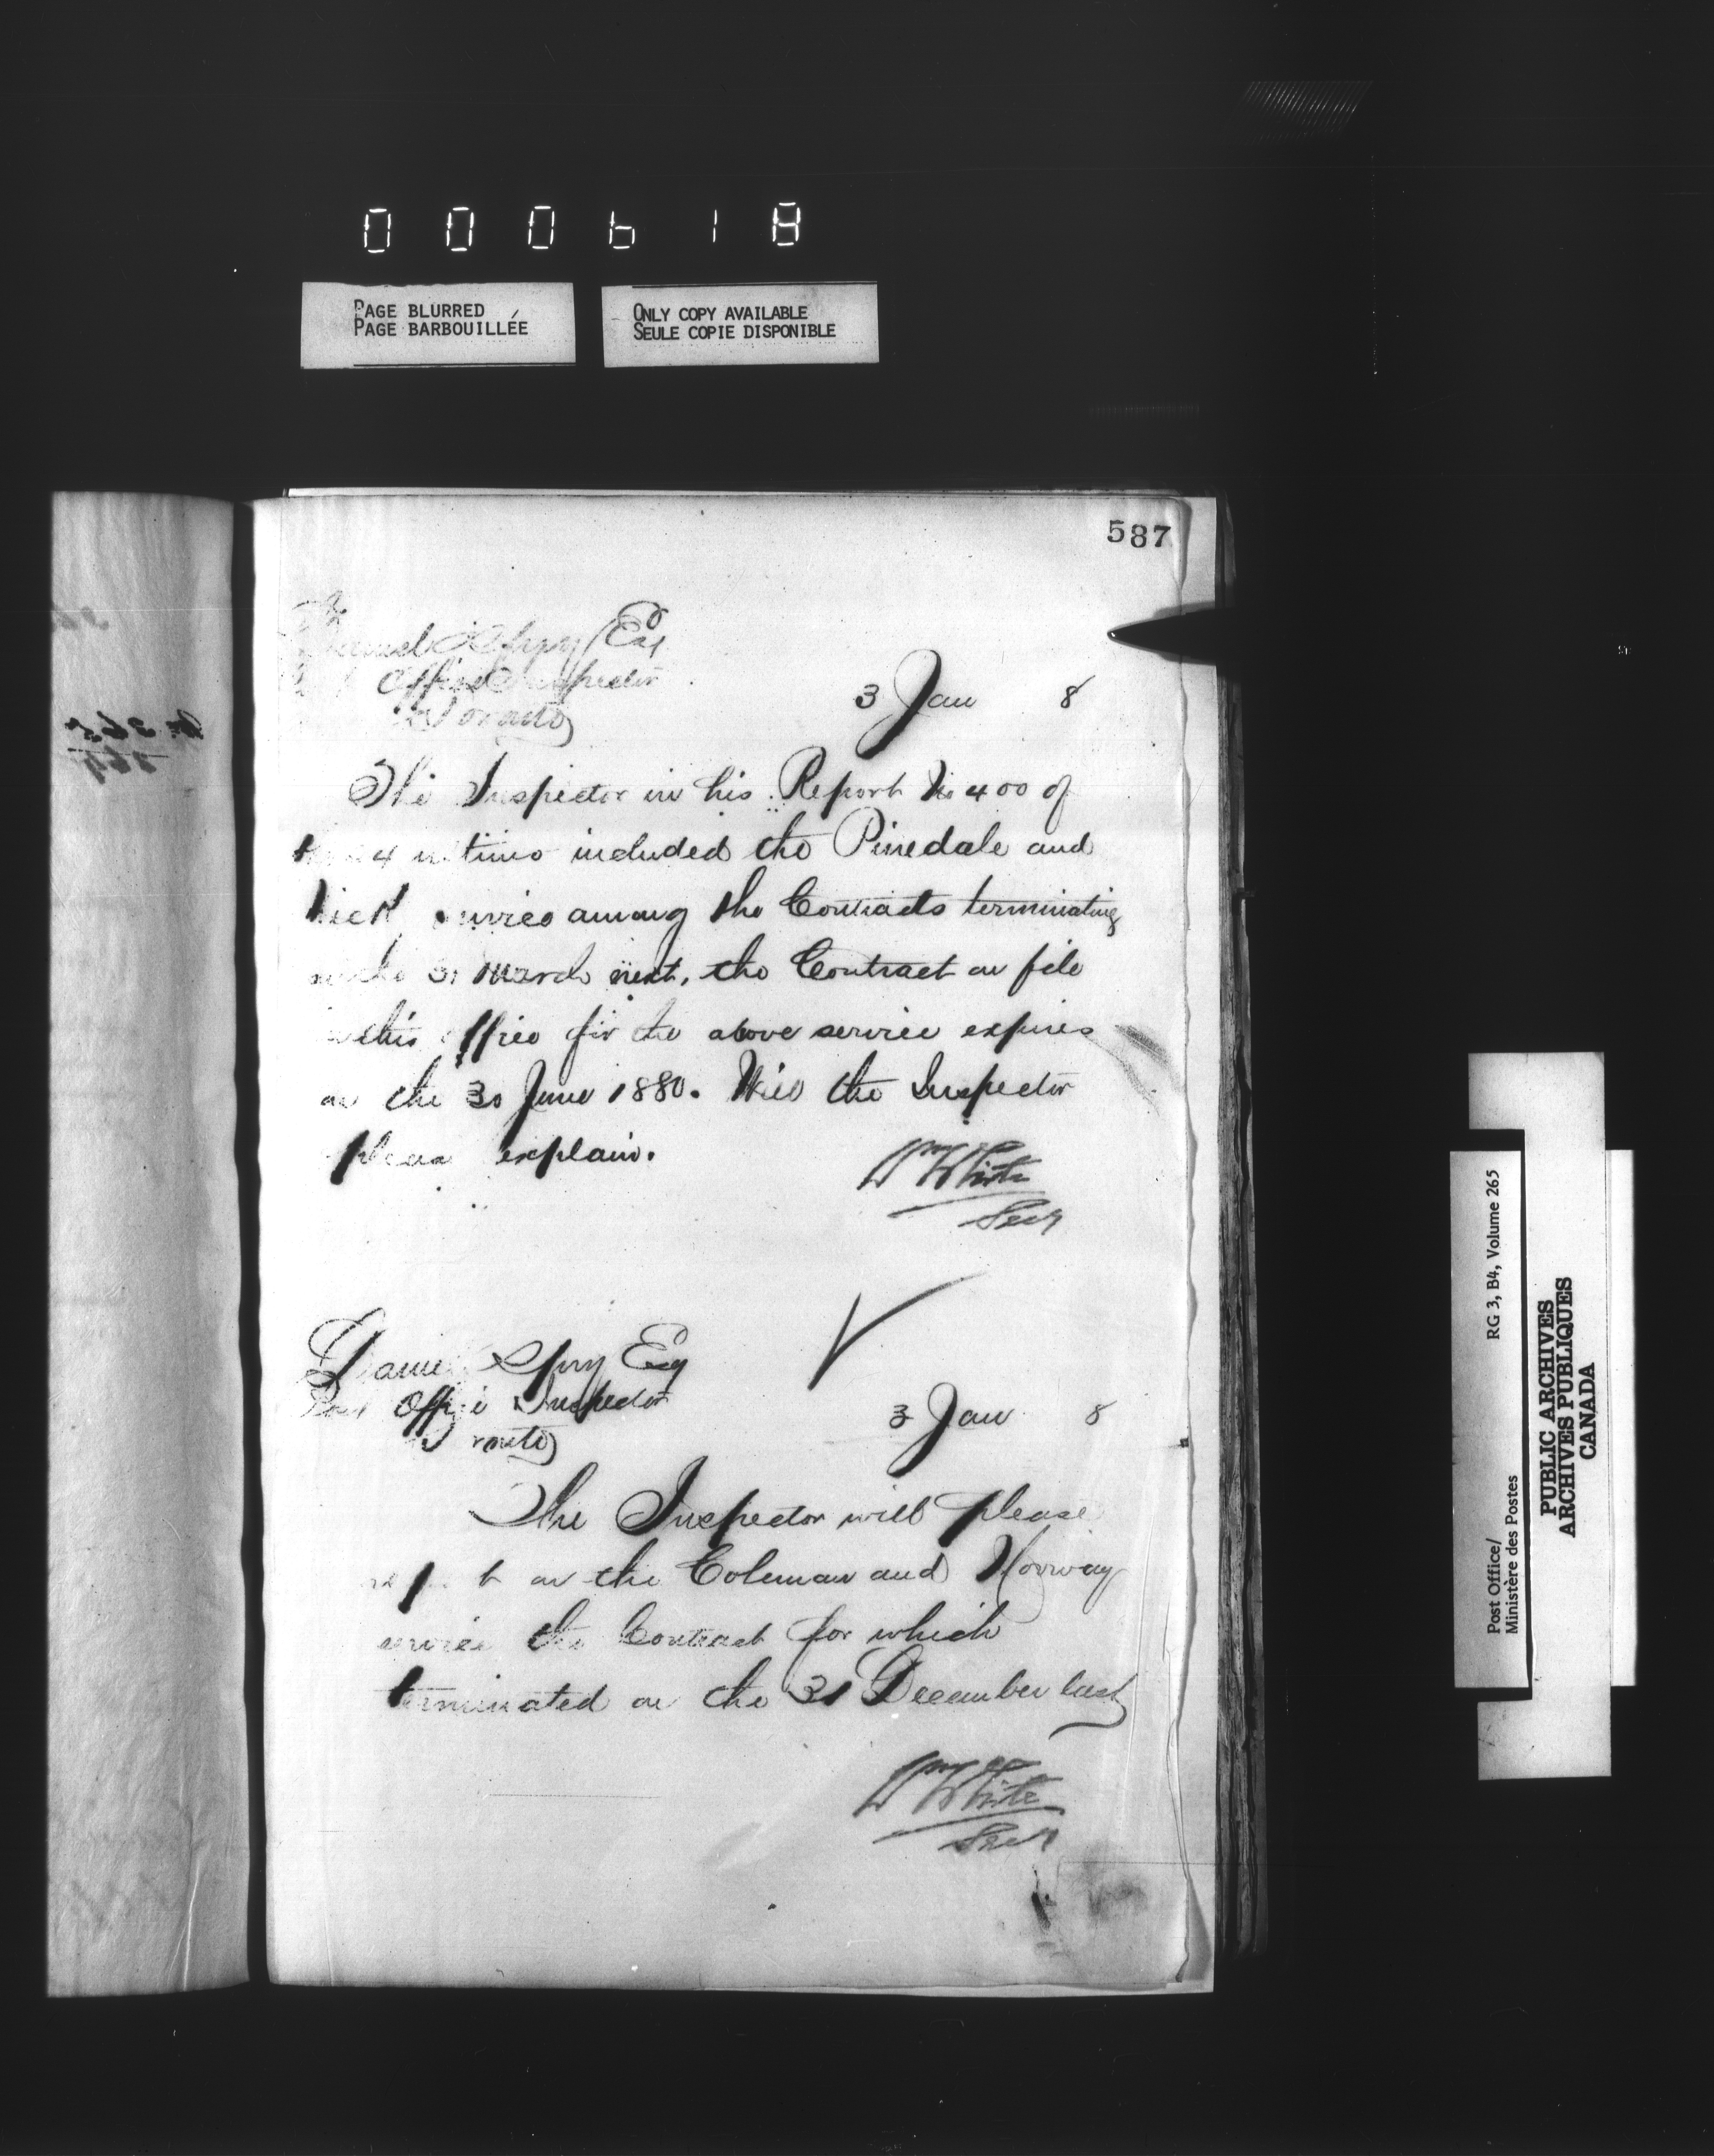 000618
PAGE BLURRED
PAGE BARBOUILLÉE
ONLY COPY AVAILABLE
SEULE COPIE DISPONIBLE
587
Daniel Spry Esq
Office Inspector
Toronto
3 Jan 8
The Inspector in his Report No 400 of
4 ultimo included the Pinedale and
service among the Contracts terminating
on the 31 March next, the Contract on file
in this office for the above service expires
on the 30 June 1880. Will the Inspector
please explain.
Wm White
Secy
Daniel Spry Esq
Post Office Inspector
Toronto
3 Jan 8
The Inspector will please
report on the Coleman and Norway
service the Contract for which
terminated on the 31 December last
Wm White
Secy
Post Office/
Ministère des Postes
RG 3, B4, Volume 265
PUBLIC ARCHIVES
ARCHIVES PUBLIQUES
CANADA